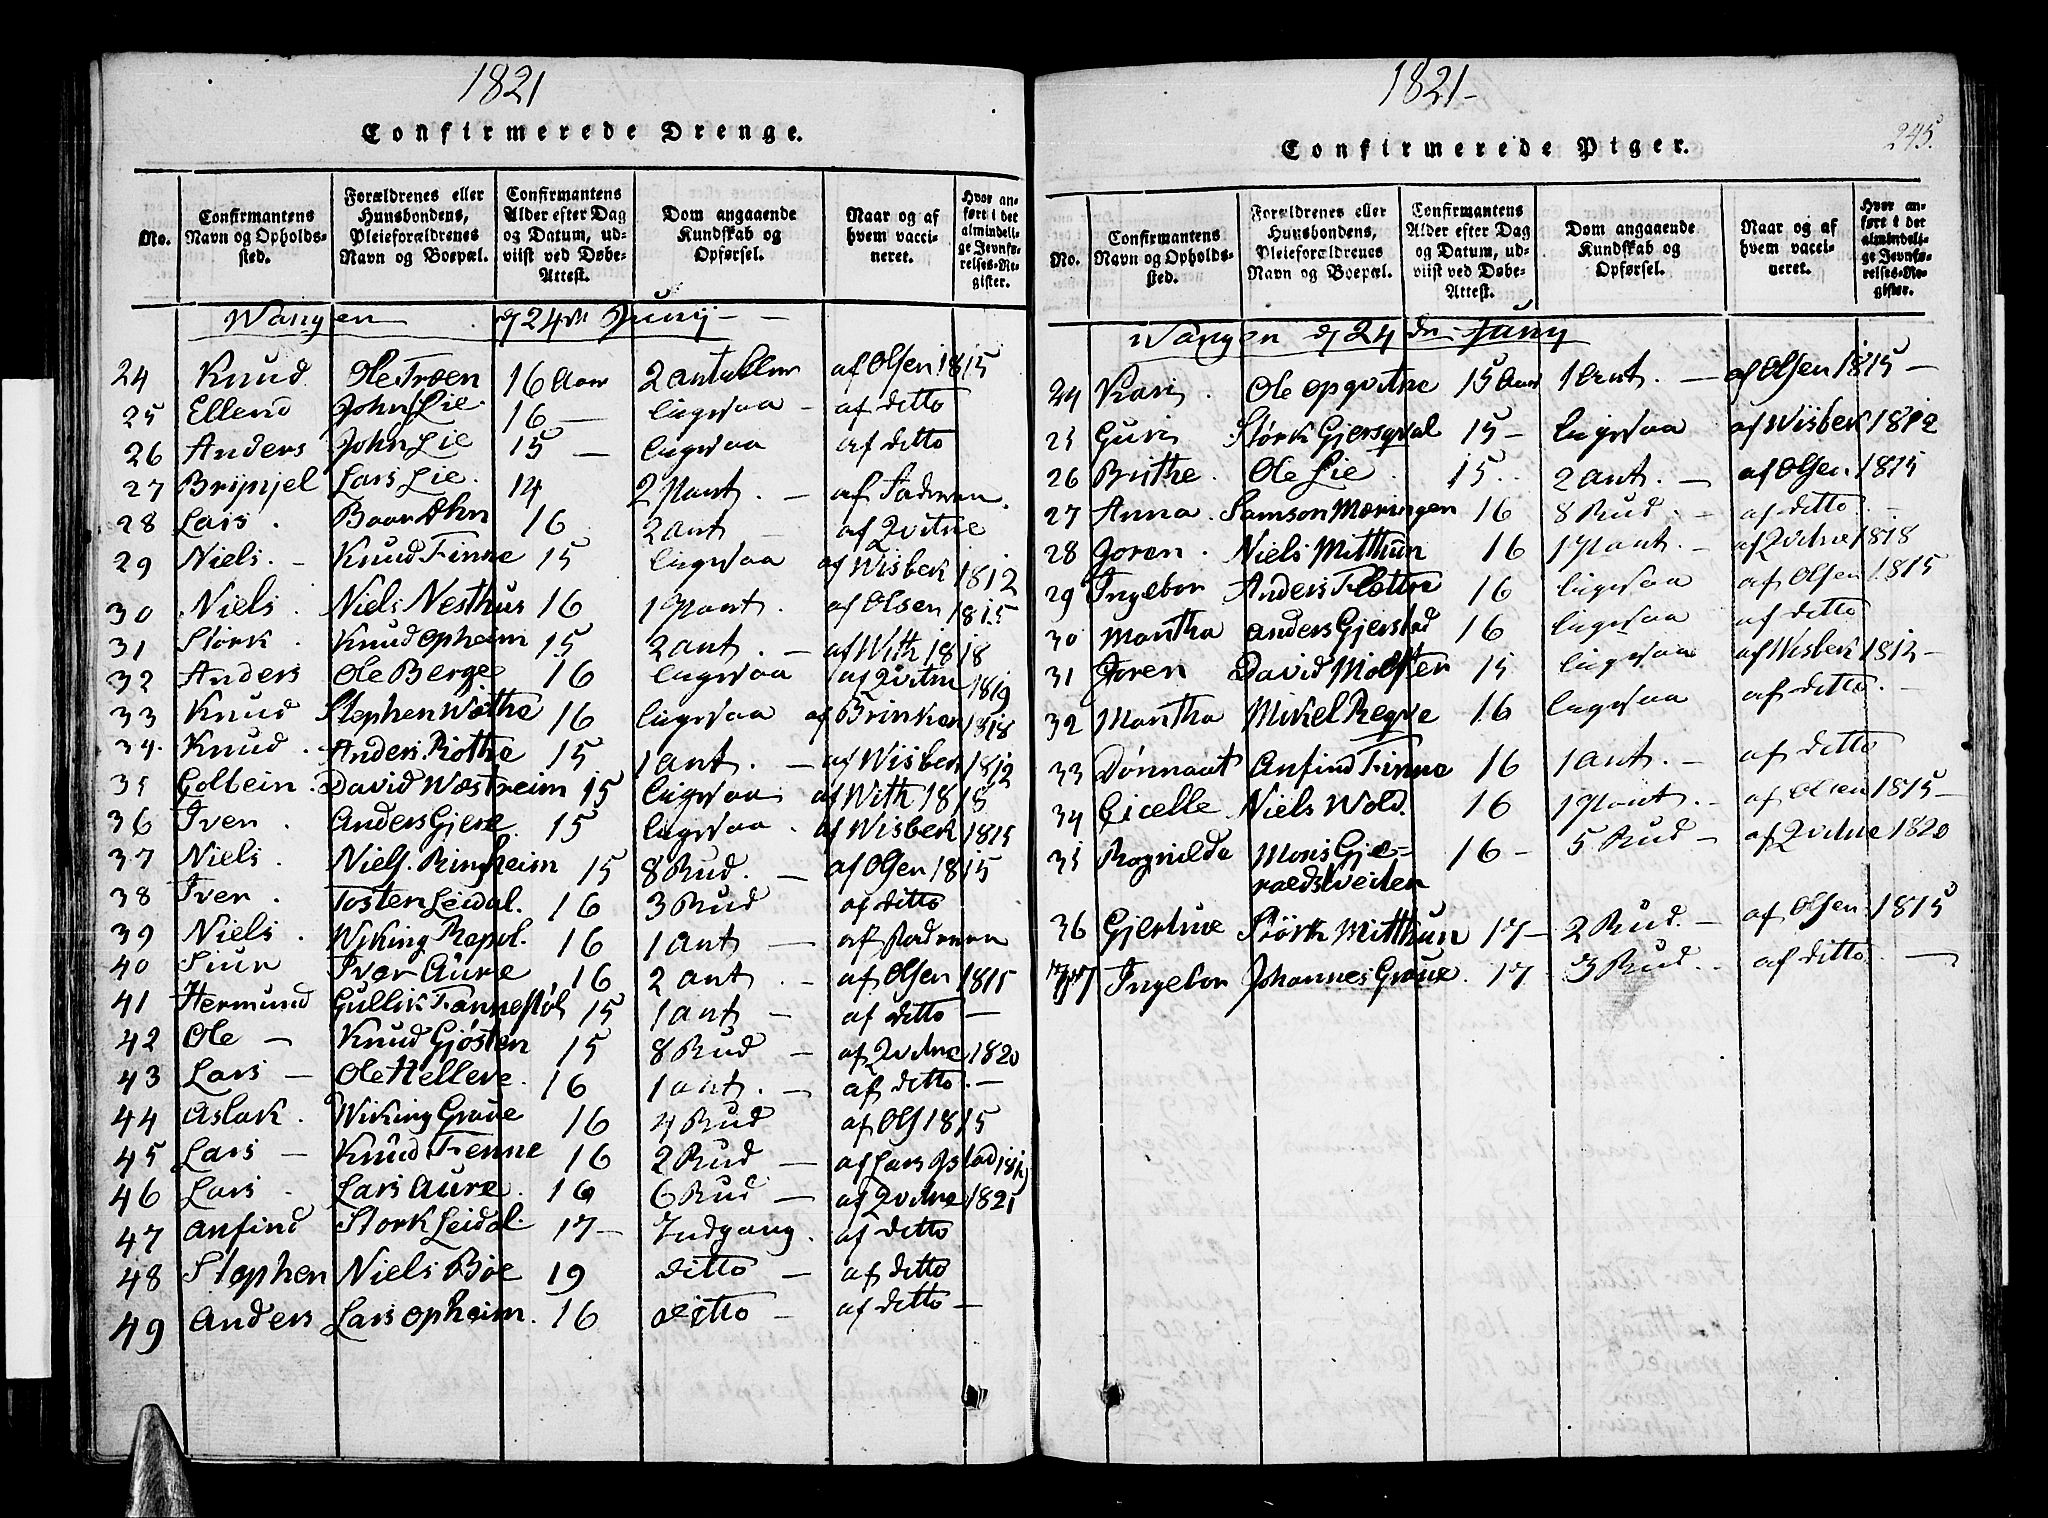 1821
Confirmerede Drenge.
No.
Confirmantens Navn og Opholds-sted.
Forældrenes eller Huusbondens, Pleieforældrenes Navn og Boepæl.
Confirmantens Alder efter Dag og Datum, ud-viist ved Døbe-Attest.
Dom angaaende Kundskab og Opførsel.
Naar og af hvem vacci-neret.
Hvor an-ført i det almindeli-ge Jevnfø-relses-Re-gister.
Wangen d 24de Juny
24 Knud Ole Troen 16 Aar 2 af Olsen 1815
25 Ellend John Lie 16 — ligesaa — af ditto
26 Anders John Lie 15 — ligesaa af ditto
27 Lars Lie. 14 2 af Faderen.
28 Lars . Baar 16 2 ant — af Qvitne
29 Niels. — Knud Finne 15 ligesaa af Wisbek 1812
30 Niels . Niels Nesthus 16 1 af Olsen 1815
31 Størk . Knud Opheim 15 2 ant. — af With 1818
32 Anders Ole Berge 16 ligesaa af Qvitne 1819
33 Knud Stephen Wøthe 16 ligesaa af Brinken 1818
34. Knud . Anders Rothe 15 1 ant. — af Wisbek 1812
35 Golbein . David Wæstreim 15 ligesaa af With 1818
36 Iver . Anders Gjere 15 ligesaa . af Wisbek 1815
37 Niels . Niels Ringheim 15 8 Bud. — af Olsen 1815
38 Iver . Tosten Leidal. 16 3 Bud af ditto
39 Niels . Wiking Repal. 16 1 ant — af Faderen
40 Siur Iver Aure 16 2 ant . — af Olsen 1815
41 Hermund Gullik Fennestøl 15 1 ant — af ditto —
42 Ole — Knud Gjøsten 15 8 Bud — af Qvitne 1820
43 Lars — Ole Hellere. 16 1 ant. — af ditto. —
44 Aslak. Wiking Graue 16 4 Bud af Ols 1815
45 Lars — Knud Fenne 16 2 Bud — af Lars
46 Lars . Lars Aure. 16 6 Bud — af Qvitne 1821
47 Anfind Størk Leidal. 17 — Indgang. af ditto
48 Stephen Niels Bøe 19 ditto — af ditto
49 Anders Lars Opheim. 16 ditto — af ditto —
1821 —
245.
Confirmerede Piger.
No.
Confirmantens Navn og Opholds-sted.
Forældrenes eller Huusbondens, Pleieforældrenes Navn og Boepæl.
Confirmantens Alder efter Dag og Datum, ud-viist ved Døbe-Attest.
Dom angaaende Kundskab og Opførsel.
Naar og af hvem vacci-neret.
Hvor an-ført i det almindeli-ge Jevnfø-relses-Re-gister.
Wangen d 24de Juny
24 Kari . Ole Opqvitne 15 Aar 1 Ant. — af Olsen 1815 —
25 Guri Størk Gjersqval 15 — ligesaa af Wisbek 1812
26 Brithe . Ole Lie . 15 . . 2 ant. — af Olsen 1815
27 Anna . Samson Mæringen 16 8 Bud . — af ditto. —
28 Joren . Niels Mitthun 16 1 — af Qvitne 1818
29 Ingebor Anders Flattre 16 ligesaa af Olsen 1815
30 Martha Anders Gjerstad 16 ligesaa af ditto
31 Joren David Mølster 15 ligesaa af Wisbek 1812 —
32 Martha Mikel Reqve 16 ligesaa af ditto. —
33 Anfind Finne 16 1 ant. — af ditto
34 Cicelle Niels Wold. 16 1 af Olsen 1815 —
35 Rognilde Mons Gje= 16 — 5 Bud — af Qvitne 1820
raldstveiten
36 Gjertrue Størk Mitthun 17 — 2 Bud. — af Olsen 1815
37 Ingebor Johannes Graue. 17 3 Bud. . af ditto. —